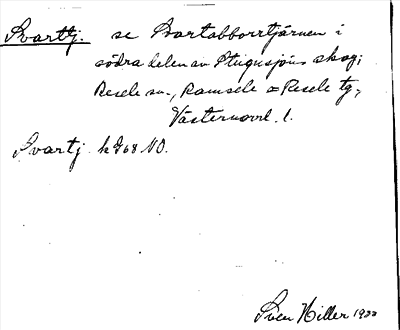 Svarttj. se Bortabborrtjärnen i
södra delen av Stugusjöns skog;
Resele sn., Ramsele o Resele tg.,
Västernorrl. l.
Svartj k 968 NO.
Sven Hiller 1933